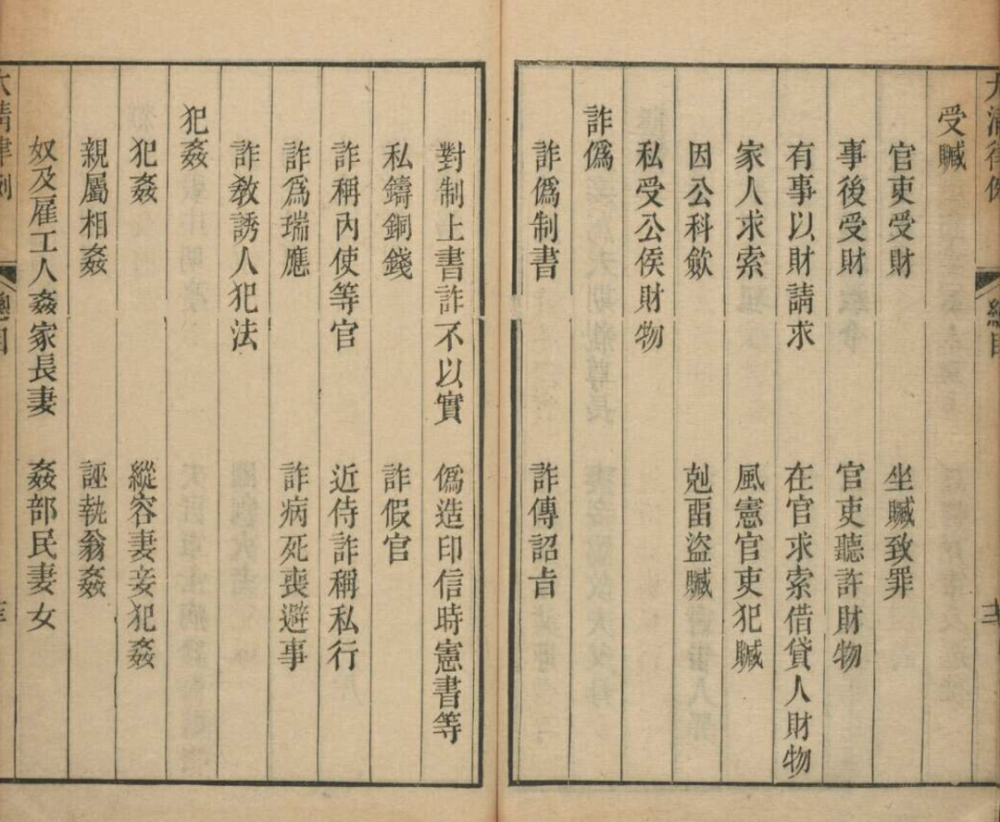 大清律例
總目
受贓
官吏受財 坐贓致罪
事後受財 官吏聽許財物
有事以財請求 在官求索借貸人財物
家人求索 風憲官吏犯贓
因公科歛 剋畱盜贓
私受公侯財物
詐僞
詐僞制書 詐傳詔旨
對制上書詐不以實 僞造印信時憲書等
私鑄銅錢 詐假官
詐稱內使等官 近侍詐稱私行
詐爲瑞應 詐病死喪避事
詐教誘人犯法
犯姦
犯姦 縱容妻妾犯姦
親屬相姦 誣執翁姦
奴及雇工人姦家長妻 姦部民妻女
大清律例
總目